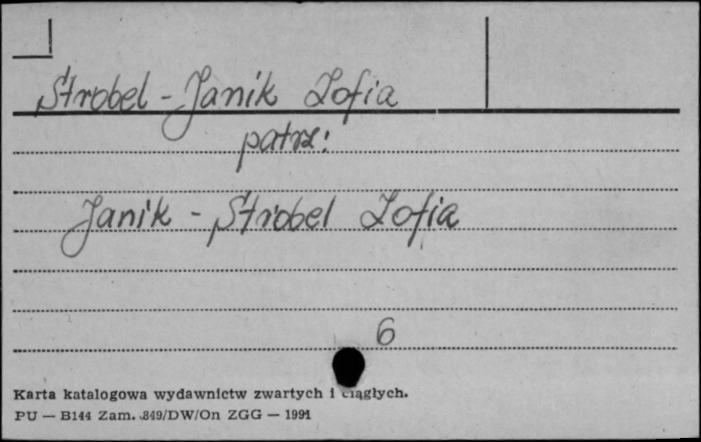 Strobel-Janik Zofia
patrz:
Janik-Strobel Zofia
6
Karta katalogowa wydawnictw zwartych i ciągłych.
PU — B144 Zam. 849/DW/On ZGG — 1991